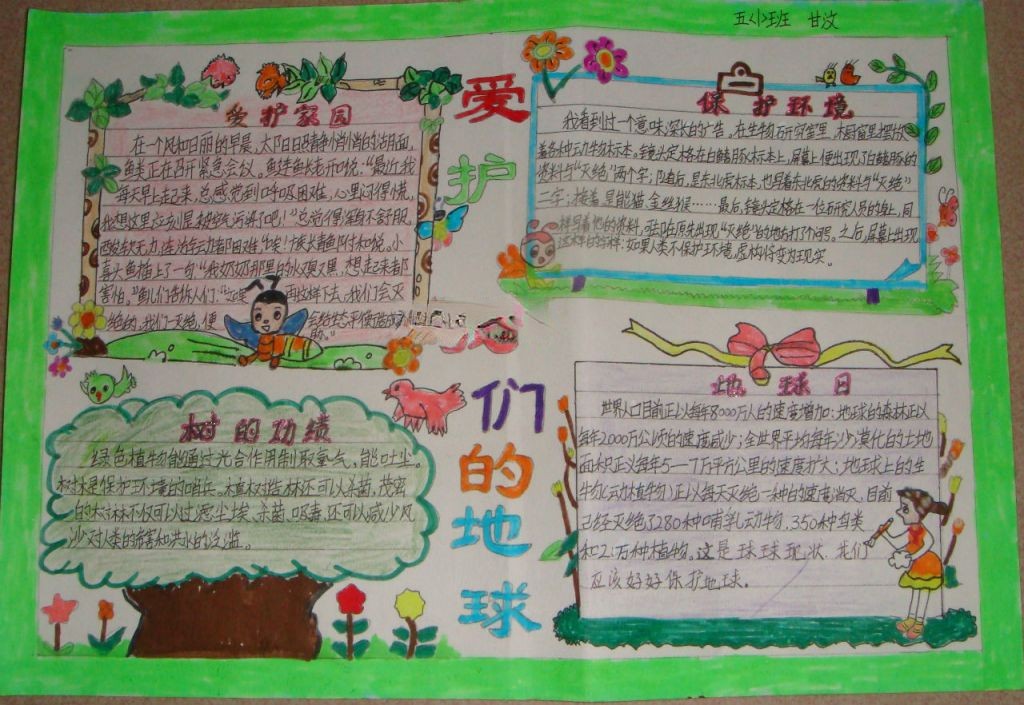 五(小)班 甘汶
爱护我们的地球
爱护家园
在一个风和日丽的早晨,太阳日晒静悄悄的湖面,
鱼类正在召开紧急会议。鱼连鱼长老示说:“最近我
每天早上起来,总感觉到呼吸困难,心里闷得慌,
我想这里应列是被污染了吧!”总觉得浑身不舒服,
西软无力,连游车动都困难
喜头鱼插上了一句“我奶奶那里的水又臭又黑,想起来都
害怕。”鱼儿们告诉人们:
再这样下去,我们会灭
绝的,我们一灭绝,便
会给生态平衡造成
保护环境
我看到过一个意味深长的广告。在生物研究室里,木橱窗里摆放
着各种动物标本。镜头定格在白鳍豚标本上,屏幕上便出现了白鳍豚的
资料与“灭绝”两个字;随后,是东北虎标本,也写着东北虎的资料与“灭绝”
二字;接着是熊猫、金丝猴……最后,镜头定格在一位研究人员的身上,同
样写着他的资料,
这样的字样:如果人类不保护环境,虚构将变为现实。
树的功绩
绿色植物能通过光合作用制取氧气,能吐尘。
树木是保护环境的哨兵。植树造林还可以杀菌,茂密
的树林不仅可以过滤尘埃、杀菌、吸毒,还可以减少风
沙对人类的
地球日
世界人口目前正以每年8000万人的速度增加;地球的森林正以
每年2000万公顷的速度减少;全世界平均每年沙漠化的土地
面积正以每年5—7万平方公里的速度扩大;地球上的生
物(动植物)正以每天灭绝一种的速度消灭,目前
已经灭绝了280种哺乳动物,350种鸟类
和2.1万种植物。这是球球现状,我们
应该好好保护地球。